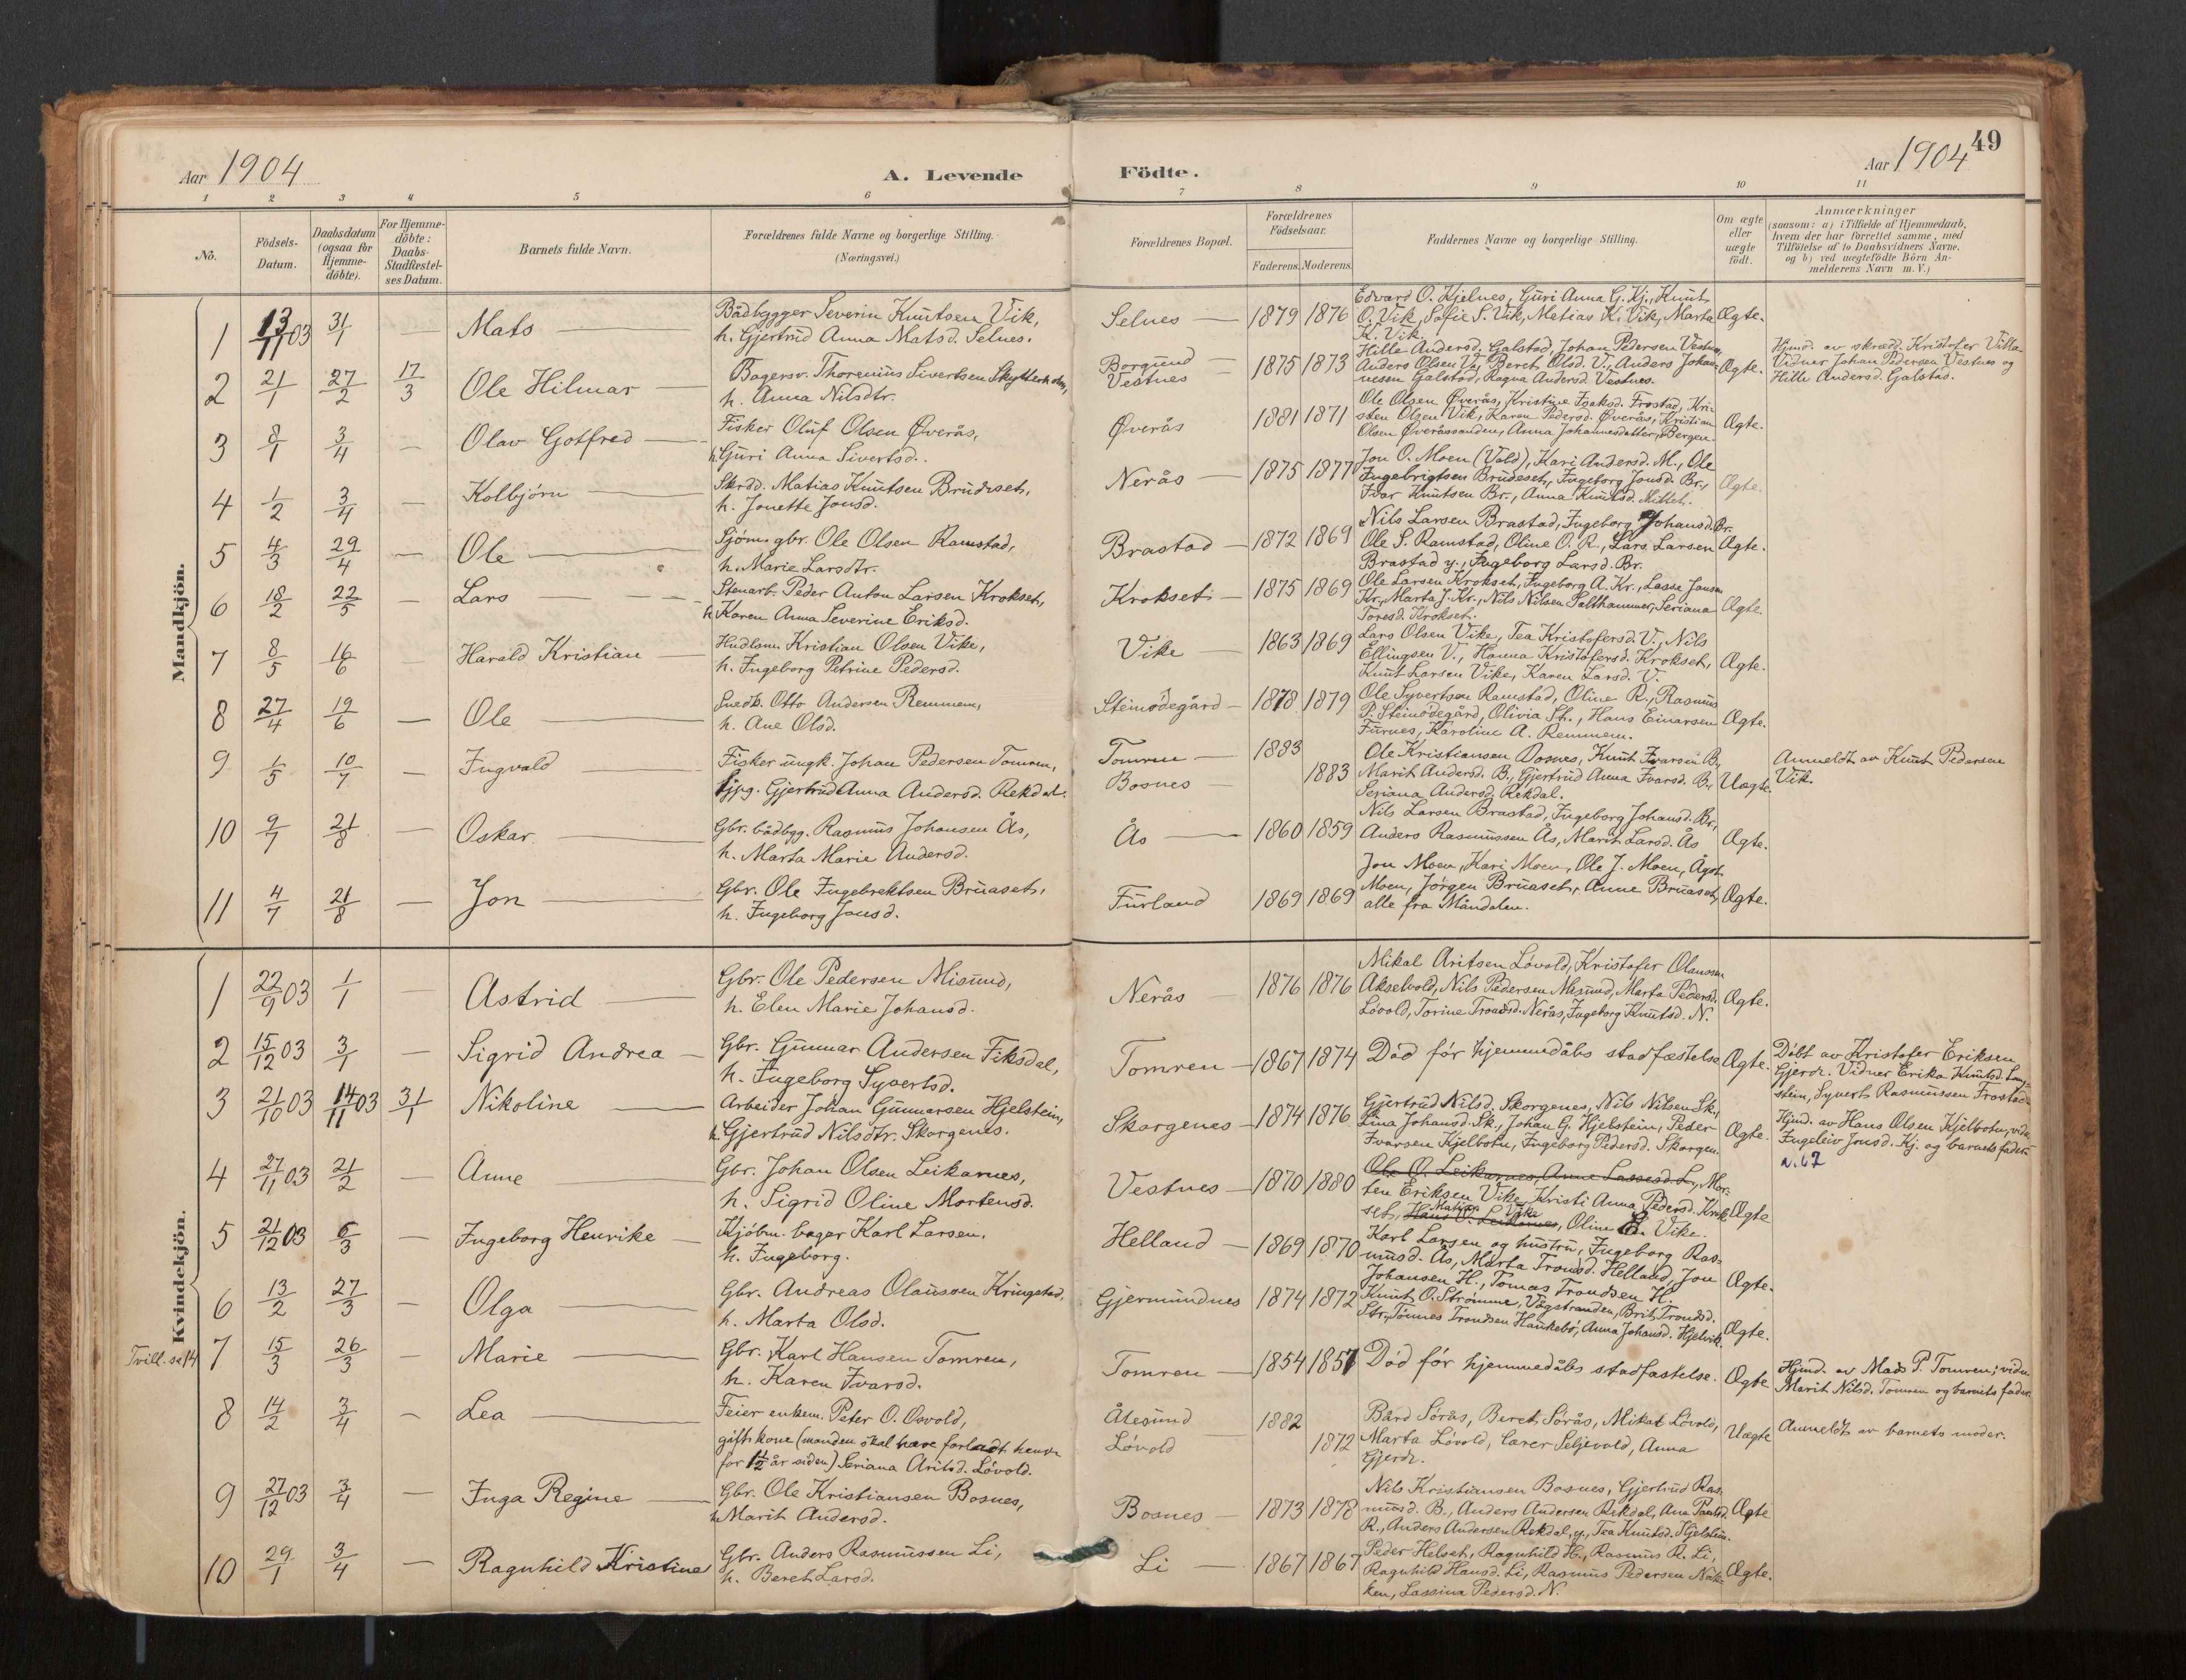 49
Aar 1904
A. Levende
Födte.
Aar 1904
1 2 3 4 5 6 7 8 9 10 11
No.
Födsels-Datum.
Daabsdatum (ogsaa for Hjemme-döbte).
For Hjemme-döbte: Daabs-Stadfæstel-ses Datum.
Barnets fulde Navn.
Forældrenes fulde Navne og borgerlige Stilling. (Næringsvei.)
Forældrenes Bopæl.
Forældrenes Födselsaar.
Faderens. Moderens.
Faddernes Navne og borgerlige Stilling.
Om ægte eller uægte födt.
Anmærkninger
(saasom: a) i Tilfælde af Hjemmedaab,
hvem der har forrettet samme, med
Tilföielse af to Daabsvidners Navne.
og b) ved uægtefödte Börn An-
melderens Navn m. V.)
Mandkjön.
1 13/11 03 31/1 — Mats —
Bådbygger Severin Knutsen Vik,
h. Gjertrud Anna Matsd. Selnes.
Selnes — 1879 1876
Edvard O. Kjelnes, Guri Anna G. Kj., Knut
O. Vik, Sofie S. Vik, Matias K. Vik, Marta
K. Vik.
Ægte.
2 21/1 27/2 17/3 Ole Hilmar —
Bagersv. Thorenius Sivertsen Skytterholm,
h. Anna Nilsdtr.
Borgund —
Vestnes
1875 1873
Hille Andersd. Galstad, Johan Pedersen Vestnes,
Anders Olsen V., Beret Olsd. V., Anders Johan-
nesen Galstad, Ragna Andersd. Vestnes.
Ægte.
Hjmd. av skrædd. Kristofer Villa
Vidner Johan Pedersen Vestnes og
Hille Andersd. Galstad.
3 8/1 3/4 — Olav Gotfred —
Fisker Oluf Olsen Øverås,
h. Guri Anna Sivertsd.
Øverås 1881 1871
Ole Olsen Øverås, Kristine Isaksd. Frostad, Kri-
sten Olsen Vik, Karen Pedersd. Øverås, Kristian
Olsen Øveråssanden, Anna Johannesdatter, Bergen.
Ægte.
4 1/2 3/4 — Kolbjörn —
Skrdd. Matias Knutsen Brudeset,
h. Jonette Jonsd.
Nerås — 1875 1877
Jon O. Moen (Vold), Kari Andersd. M., Ole
Ingebrigtsen Brudeset, Ingeborg Jonsd. Br.,
Ivar Knutsen Br., Anna Knutsd. Mittet.
Ægte.
5 4/3 29/4 — Ole —
Sjöm. gbr. Ole Olsen Ramstad,
h. Marie Larsdtr.
Brastad — 1872 1869
Nils Larsen Brastad, Ingeborg Johansd. Br.
Ole S. Ramstad, Oline O. R., Lars Larsen
Brastad y., Ingeborg Larsd. Br.
Ægte.
6 18/2 22/5 — Lars —
Stenarb. Peder Anton Larsen Krokset,
h. Karen Anna Severine Eriksd.
Krokset — 1875 1869
Ole Larsen Krokset, Ingeborg A. Kr., Lasse Jansen
Kr., Marta J. Kr., Nils Nilsen Salthammer, Seriana
Toresd. Krokset.
Ægte.
7 8/5 16/6 — Harald Kristian —
Hndlsm. Kristian Olsen Vike,
h. Ingeborg Petrine Pedersd.
Vike — 1863 1869
Lars Olsen Vike, Tea Kristofersd. V., Nils
Ellingsen V., Hanna Kristofersd. Krokset,
Knut Larsen Vike, Karen Larsd. V.
Ægte.
8 27/4 19/6 — Ole —
Snedk. Otto Andersen Remmem,
h. Ane Olsd.
Steinödegård — 1878 1879
Ole Syvertsen Ramstad, Oline R., Rasmus
P. Steinödegård, Olivia St., Hans Einarsen
Furnes, Karoline A. Remmem.
Ægte.
9 1/5 10/7 — Ingvald —
Fisker ungk. Johan Pedersen Tomren,
pg. Gjertrud Anna Andersd. Rekdal.
Tomren — 1883
Bosnes — 1883
Ole Kristiansen Bosnes, Knut Ivarsen B.,
Marit Andersd. B., Gjertrud Anna Ivarsd. B.,
Seriana Andersd. Rekdal.
Uægte.
Anmeldt av Knut Pedersen
Vik.
10 9/7 21/8 — Oskar. —
Gbr. bådbygg. Rasmus Johansen Ås,
h. Marta Marie Andersd.
Ås — 1860 1859
Nils Larsen Brastad, Ingeborg Johansd. Br.,
Anders Rasmussen Ås, Marit Larsd. Ås
Ægte.
11 4/7 21/8 — Jon —
Gbr. Ole Ingebrektsen Bruaset,
h. Ingeborg Jonsd.
Furland 1869 1869
Jon Moen, Kari Moen, Ole J. Moen, Agot
Moen, Jörgen Bruaset, Anne Bruaset,
alle fra Måndalen.
Ægte.
Kvindekjön.
1 22/9 03 1/1 — Astrid —
Gbr. Ole Pedersen Misund,
h. Elen Marie Johansd.
Nerås 1876 1876
Mikal Aritsen Lövold, Kristofer Olaussen
Akselvold, Nils Pedersen Misund, Marta Pedersd.
Lövold, Torine Trondsd. Nerås, Ingeborg Knutsd. N.
Ægte.
2 15/12 03 3/1 — Sigrid Andrea —
Gbr. Gunnar Andersen Fiksdal,
h. Ingeborg Syvertsd.
Tomren — 1867 1874
Död för hjemmedåbs stadfæstelse
Ægte.
Döbt av Kristofer Eriksen
Gjerde. Vidner Erika Knutsd. Lang-
stein, Syvert Rasmussen Frostad.
3 21/10 03 14/11 03 31/1 Nikoline —
Arbeider Johan Gunnarsen Hjelstein,
h. Gjertrud Nilsdtr. Skorgenes.
Skorgenes — 1874 1876
Gjertrud Nilsd. Skorgenes, Nils Nilsen Sk.,
Lina Johansd. Sk., Johan G. Hjelstein, Peder
Ivarsen Kjelbotn, Ingeborg Pedersd. Skorgen.
Ægte.
Hjmd. av Hans Olsen Kjelbotn, vidn.
Ingeleiv Jonsd. Kj. og barnets fader.
N. 62
4 27/11 03 21/2 — Anne —
Gbr. Johan Olsen Leikarnes,
h. Sigrid Oline Mortensd.
Vestnes — 1870 1880
Ole O. Leikarnes, Anne Lassesd. L., Mor-
ten Eriksen Vike, Kristi Anna Pedersd. Krok-
set, Hans O. Leikarnes, Matias Vike, Oline E. Vike.
Ægte
5 21/12 03 6/3 — Ingeborg Henrike —
Kjöbm. bager Karl Larsen,
h. Ingeborg.
Helland — 1869 1870
Karl Larsen og hustru, Ingeborg Ras-
musd. Ås, Marta Trondsd. Helland, Jon
Johansen H., Tomas Trondsen H.
Ægte.
6 13/2 27/3 — Olga —
Gbr. Andreas Olaussen Kringstad,
h. Marta Olsd.
Gjermundnes 1874 1872
Knut O. Strömme, Vågstranden, Brit Trondsd.
Str., Tönnes Trondsen Haukebö, Anna Johansd. Hjelvik.
Ægte.
Tvill. se 14
7 15/3 26/3 — Marie —
Gbr. Karl Hansen Tomren,
h. Karen Ivarsd.
Tomren — 1854 1857
Död för hjemmedåbs stadfæstelse.
Ægte
Hjmd. av Mads P. Tomren; vidn.
Marit Nilsd. Tomren og barnets fader.
8 14/2 3/4 — Lea —
Feier enkem. Peter O. Osvold,
gift kone (manden skal have forladt hende
for 1 1/2 år siden) Seriana Aritsd. Lövold.
Ålesund 1882
Lövold 1872
Bård Sörås, Beret Sörås, Mikal Lövold,
Marta Lövold, Seljevold, Anna
Gjerde.
Uægte
Anmeldt av barnets moder.
9 27/12 03 3/4 — Inga Regine —
Gbr. Ole Kristiansen Bosnes,
h. Marit Andersd.
Bosnes — 1873 1878
Nils Kristiansen Bosnes, Gjertrud Ras-
musd. B., Anders Andersen Rekdal, Ane Paulsd.
R., Anders Andersen Rekdal, y., Tea Knutsd. Hjelstein.
Ægte
10 29/1 3/4 — Ragnhild Kristine
Gbr. Anders Rasmussen Li,
h. Beret Larsd.
Li — 1867 1867
Peder Helset, Ragnhild H., Rasmus R. Li,
Ragnhild Hansd. Li, Rasmus Pedersen Nak-
ken, Lassina Pedersd. N.
Ægte.